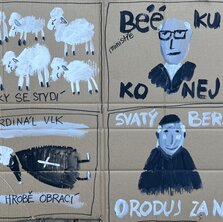 Béé KU
ministře
KO NEJ
KY SE STYDÍ
RDINÁL VLK
HROBĚ OBRACÍ
SVATÝ BER
ORODUJ ZA N